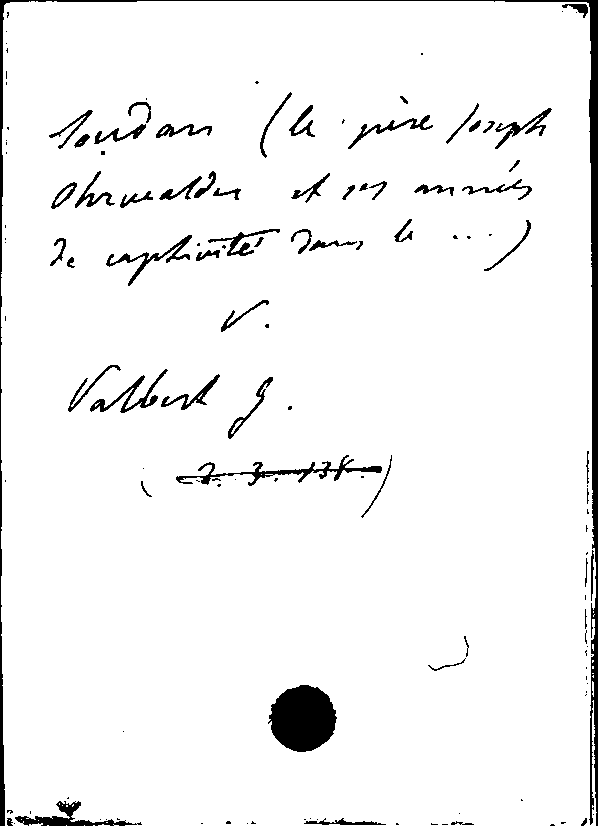 Soudan (le père Joseph
Ohrwalder et ses années
de captivité dans le ...)
V.
Valbert G.